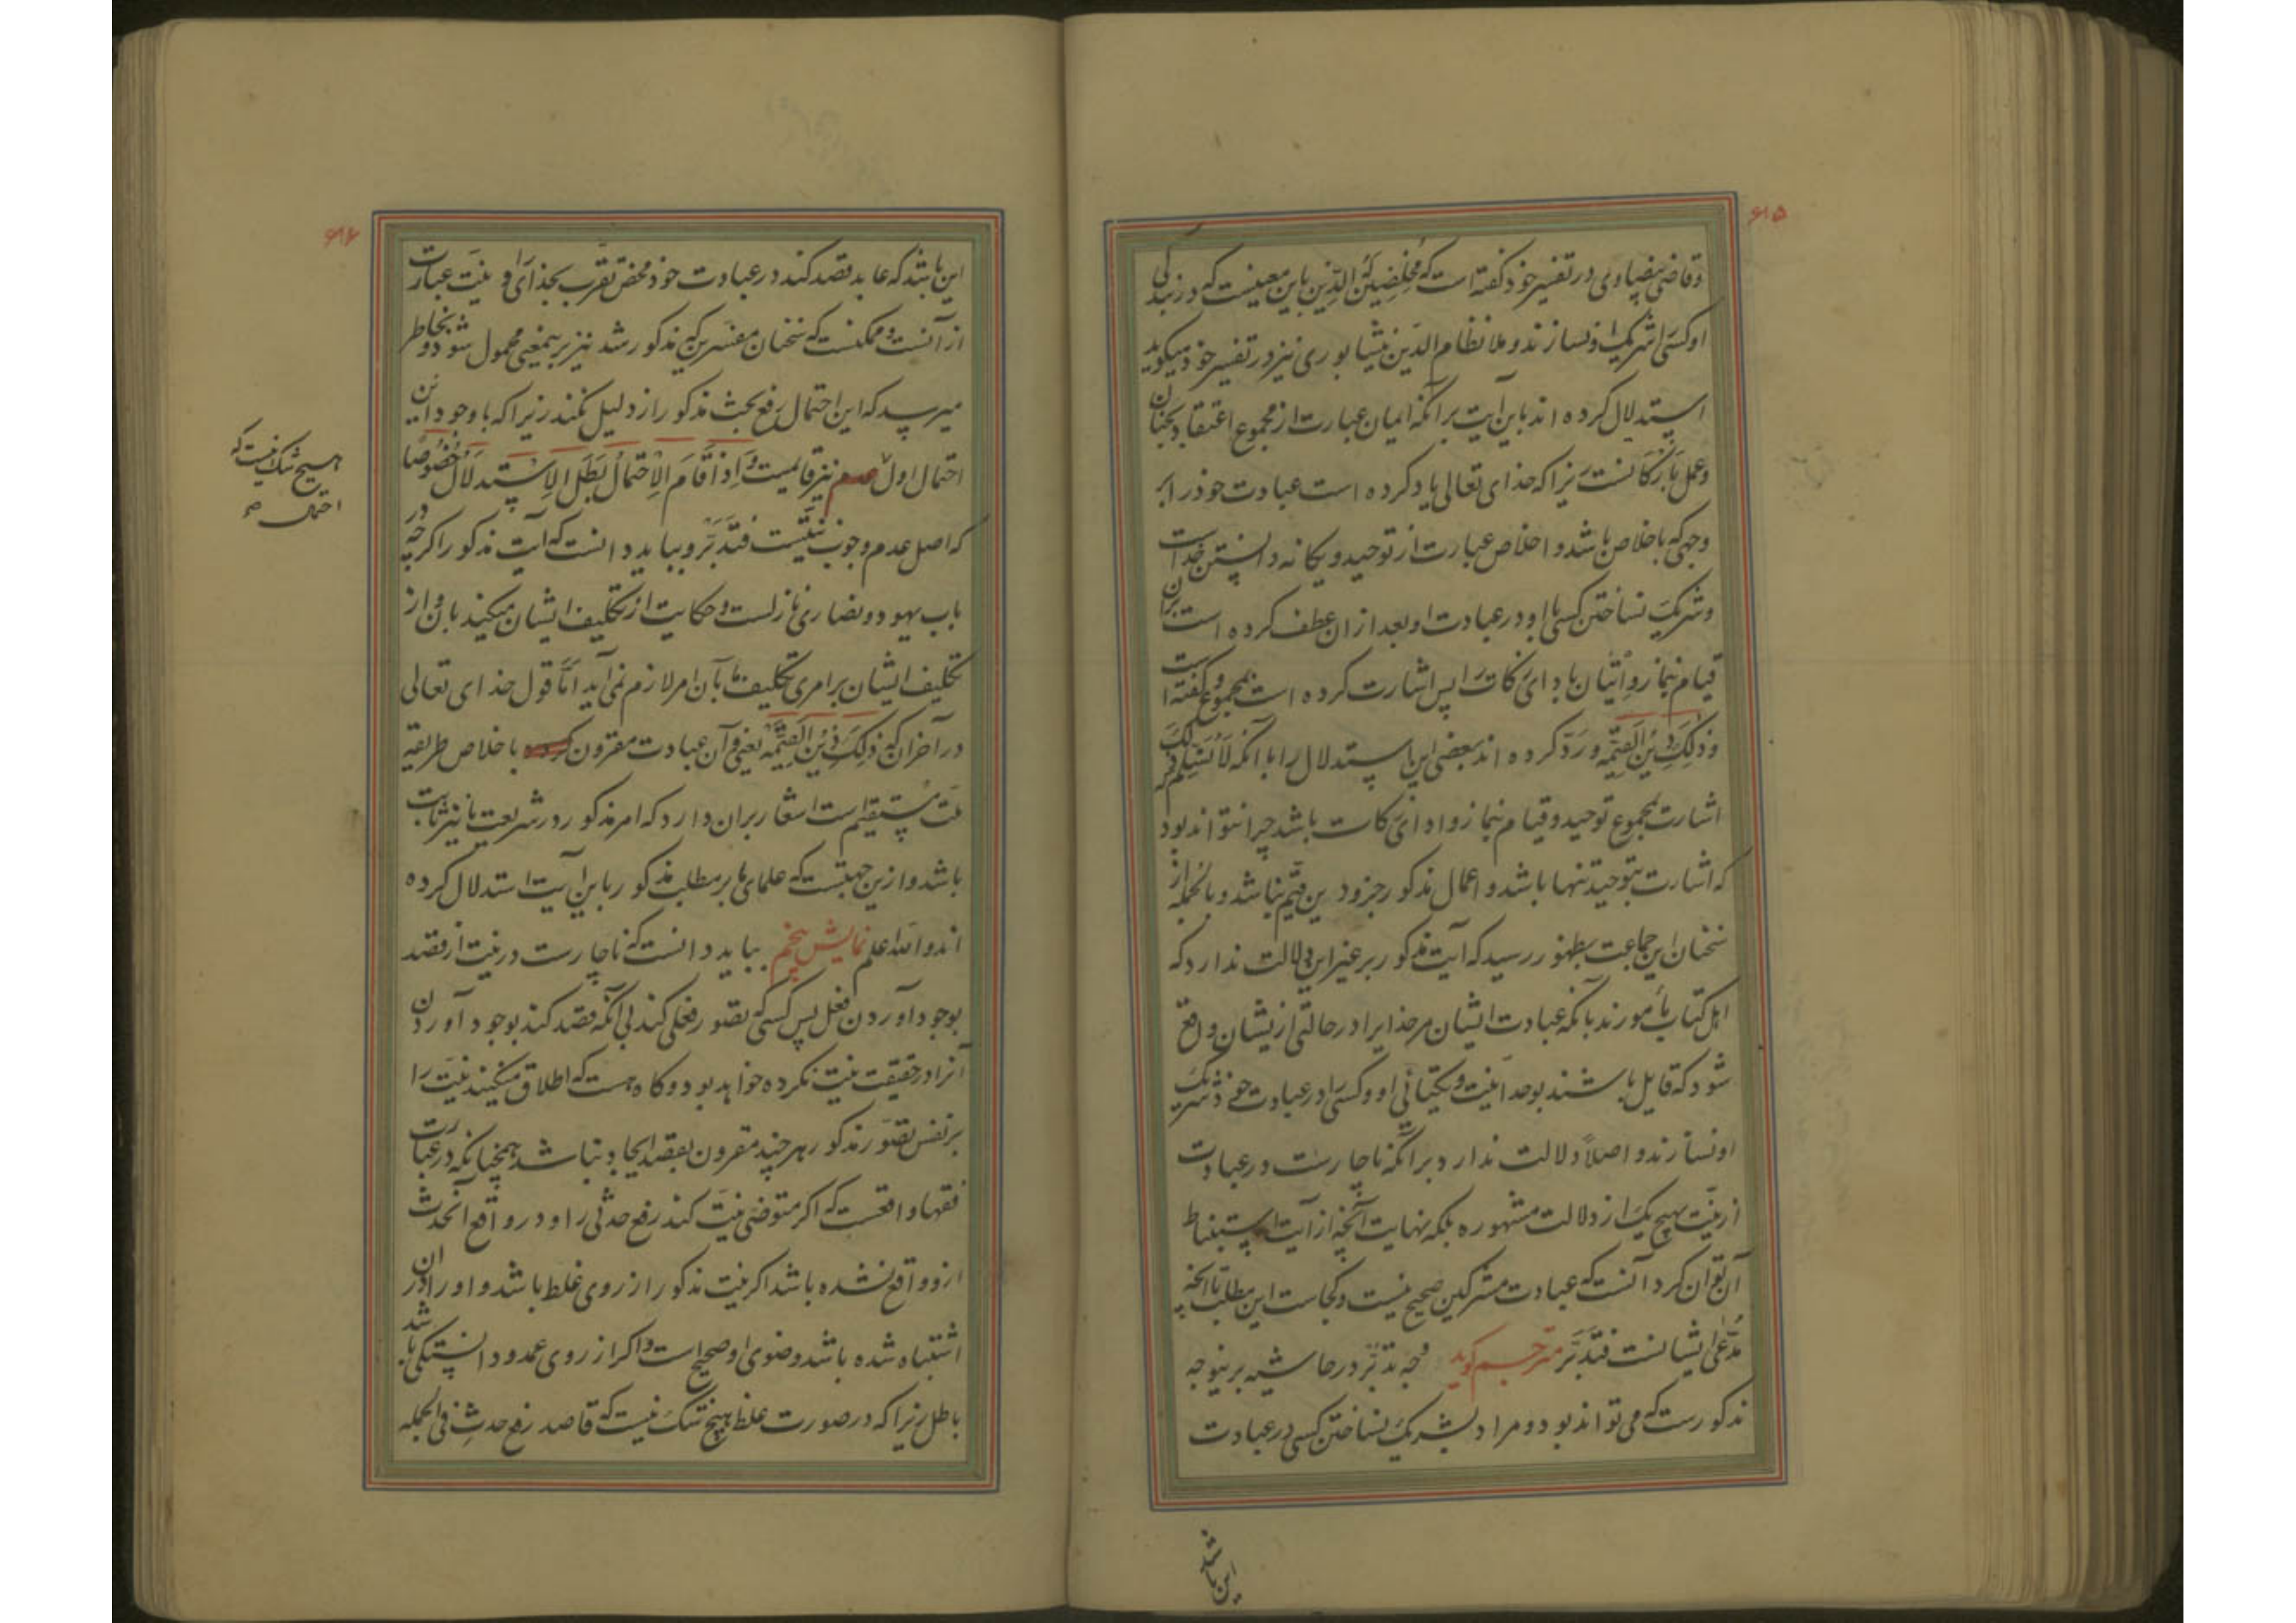 ۶۱۵
وقاضی بیضاوی در تفسیر خود گفته است که مخلصین له الدین باین معنیست که در بندگی
او کسی را شریک او نسازند و ملا نظام الدین نیشابوری نیز در تفسیر خود میگوید
استدلال کرده اند باین آیت بر آنکه ایمان عبارت از مجموع اعتقاد بجنان
و عمل بارکانست زیرا که خدای تعالی یاد کرده است عبادت خود را بر
وجهی که باخلاص باشد و اخلاص عبارت از توحید و یکانه دانستن خداست
و شریک نساختن کسی با او در عبادت او بعد ازان عطف کرده است بران
قیام بنماز و اتیان بادای زکات را پس اشارت کرده است بمجموع و گفته است
وذلک دین القیمه و رد کرده اند بعضی این استدلال را با آنکه لا نسلم که ذلک
اشارت بمجموع توحید و قیام بنماز و ادای زکات باشد چرا نتواند بود
که اشارت بتوحید تنها باشد و اعمال مذکور جزو دین قیم نباشد و بالجمله از
سخنان این جماعت بظهور رسید که آیت مذکور بر غیر این دلالت ندارد که
اهل کتاب مأمورند بآنکه عبادت ایشان مر خدایرا در حالتی ازیشان واقع
شود که قایل باشند بوحدانیت و یکتائی او و کسی را در عبادت خود شریک
او نسازند و اصلاً دلالت ندارد بر آنکه ناچارست در عبادت
از نیت بهیچ یک از دلالت مشهوره بلکه نهایت آنچه از آیت استنباط
آن توان کرد آنست که عبادت مشرکین صحیح نیست و کجاست این مطلب تا آنچه
مدعی ایشانست فتدبر مترجم گوید وجه تدبر در حاشیه برینوجه
مذکورست که می تواند بود و مراد بشریک نساختن کسی در عبادت
این باشد
۶۱۶
این باشد که عابد قصد کند در عبادت خود محض تقرب بخدای را و نیت عبارت
از آنست و ممکنست که سخنان مفسرین که مذکور شد نیز برینمعنی محمول شود و بخاطر
میرسد که این احتمال رفع بحث مذکور از دلیل نکند زیرا که با وجود این
احتمال اول هم نیز قایمیت و اذا قام الاحتمال بطل الاستدلال خصوصا
که اصل عدم وجوب نیتست فتدبر و بباید دانست که آیت مذکور اگرچه در
باب یهود و نصاری نازلست و حکایت از تکلیف ایشان میکند بآن و از
تکلیف ایشان بر امری تکلیف ما بآن امر لازم نمی آید اما قول خدای تعالی
در آخر آن که ذلک دین القیمه یعنی و آن عبادت مقرون باخلاص طریقه
ملت مستقیم است اشعار بران دارد که امر مذکور در شریعت ما نیز ثابت
باشد و ازین جهتست که علمای ما بر مطلب مذکور باین آیت استدلال کرده
اند والله اعلم نمایش پنجم بباید دانست که ناچارست در نیت از قصد
بوجود آوردن فعل پس کسی که تصور فعلی کند بی آنکه قصد کند بوجود آوردن
آنرا در حقیقت نیت نکرده خواهد بود و کاه هست که اطلاق میکنند نیت را
بر نفس تصور مذکور هر چند مقرون بقصد ایجاد نباشد همچنانکه در عبارت
فقها واقعست که اگر متوضی نیت کند رفع حدثی را و در واقع آنحدث
ازو واقع نشده باشد اگر نیت مذکور از روی غلط باشد و او را در آن
اشتباه شده باشد وضوی او صحیح است و اگر از روی عمد و دانستگی باشد
باطل زیرا که در صورت غلط هیچ شک نیست که قاصد رفع حدث فی الجمله
هیچ شک نیست که
احتمال